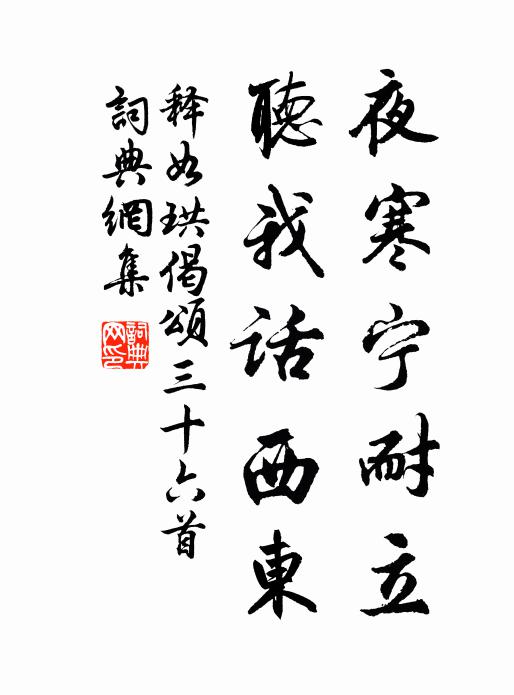 夜寒宁耐立
聽我話西東
释如珙偈頌三十六首
詞典網集
詞典网印